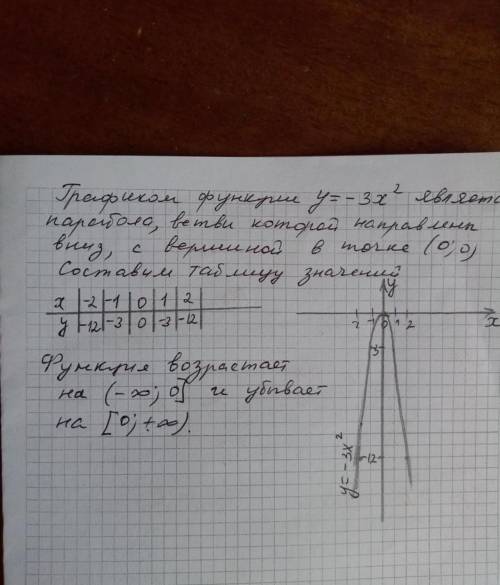 Графиком функции y = -3x² являетс
парабола, ветви которой направлены
вниз, с вершиной в точке (0; 0)
Составим таблицу значений
x | -2 | -1 | 0 | 1 | 2
y | -12 | -3 | 0 | -3 | -12
Функция возрастает
на (-∞; 0] и убывает
на [0; +∞).
y
x
-2 -1 0 1 2
-3
-12
y = -3x²